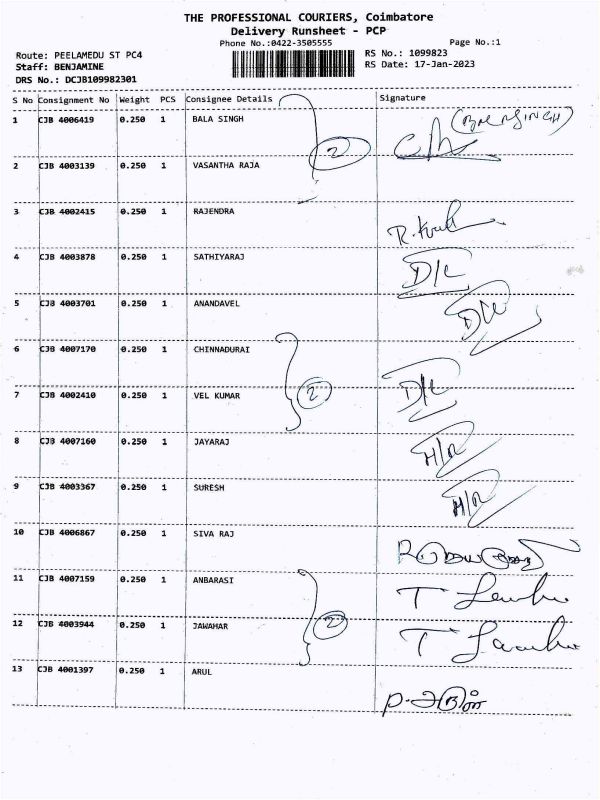 THE PROFESSIONAL COURIERS, Coimbatore
Delivery Runsheet - PCP
Phone No.:0422-3505555 Page No.:1
Route: PEELAMEDU ST PC4 RS No.: 1099823
Staff: BENJAMINE RS Date: 17-Jan-2023
DRS No.: DCJB109982301
S No Consignment No Weight PCS Consignee Details Signature
1 CJB 4006419 0.250 1 BALA SINGH
2
2 CJB 4003139 0.250 1 VASANTHA RAJA
3 CJB 4002415 0.250 1 RAJENDRA
4 CJB 4003878 0.250 1 SATHIYARAJ D/L
5 CJB 4003701 0.250 1 ANANDAVEL D/L
6 CJB 4007170 0.250 1 CHINNADURAI
7 CJB 4002410 0.250 1 VEL KUMAR 2 D/L
8 CJB 4007160 0.250 1 JAYARAJ H/R
9 CJB 4003367 0.250 1 SURESH H/R
10 CJB 4006867 0.250 1 SIVA RAJ
11 CJB 4007159 0.250 1 ANBARASI
12 CJB 4003944 0.250 1 JAWAHAR 2
13 CJB 4001397 0.250 1 ARUL P. அருள்